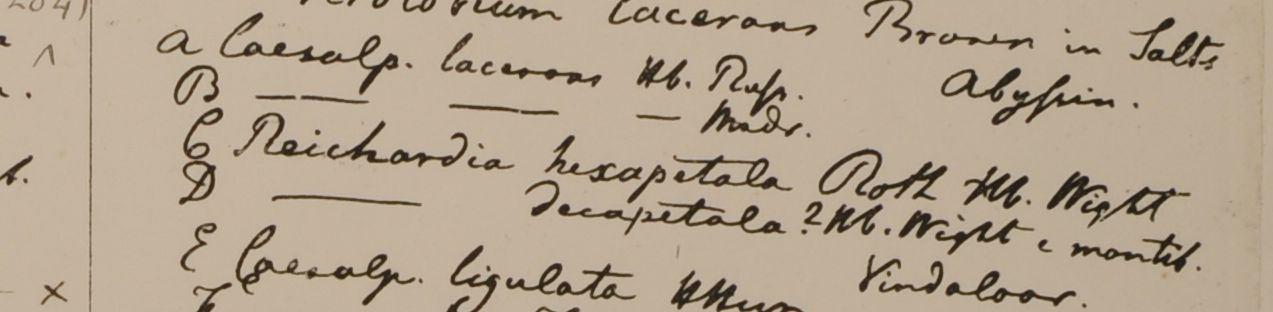 lacerans Brown in Salts
Abyssin.
A Caesalp. lacerans Hb. Russ.
B — — — Madr.
C Reichardia hexapetala Roth Hb. Wight
D — decapetala? Hb. Wight e montib.
Vindaloor.
E Caesalp. ligulata